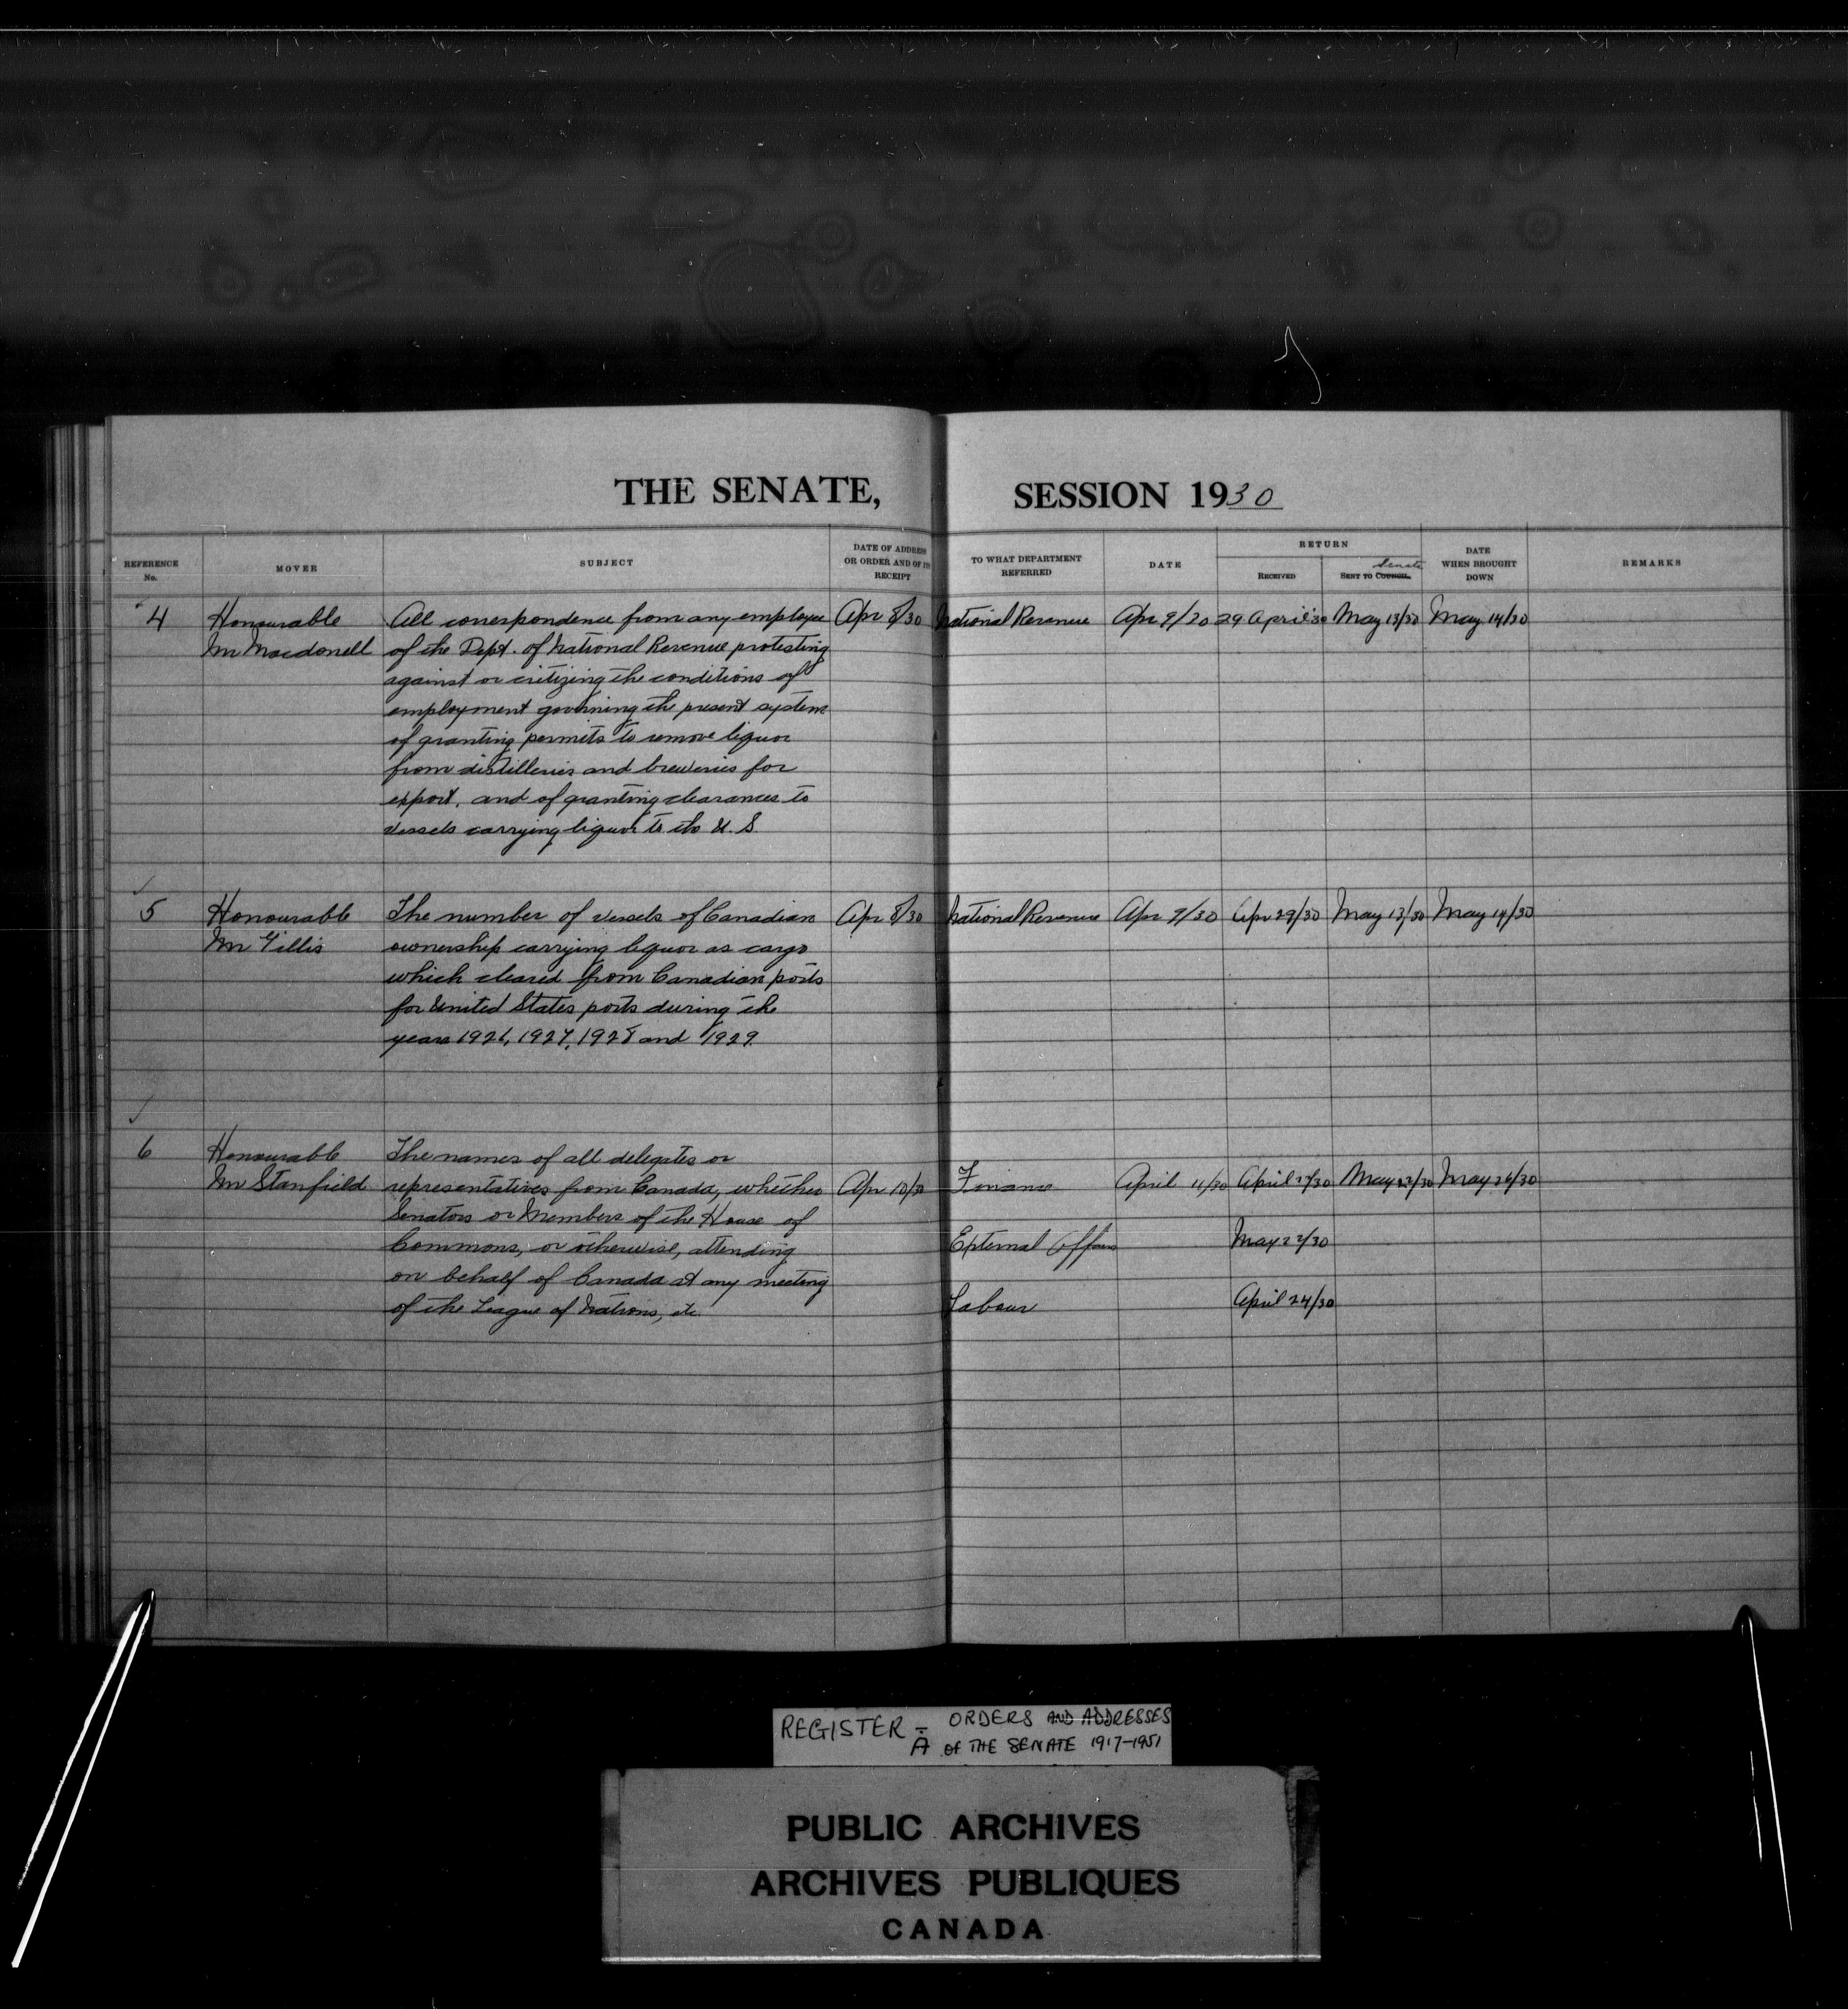 THE SENATE, SESSION 1930
REFERENCE No.
MOVER
SUBJECT
DATE OF ADDRESS OR ORDER AND OF ITS RECEIPT
TO WHAT DEPARTMENT REFERRED
DATE
RETURN
RECEIVED
SENT TO COUNCIL Senate
DATE WHEN BROUGHT DOWN
REMARKS
4 Honourable All correspondence from any employee Apr 8/30 National Revenue Apr 9/30 29 April 30 May 13/30 May 14/30
Mr Macdonell of the Dept. of National Revenue protesting
against or critizing the conditions of
employment governing the present system
of granting permits to remove liquor
from distilleries and breweries for
export, and of granting clearances to
vessels carrying liquor to the U.S.
5 Honourable The number of vessels of Canadian Apr 8/30 National Revenue Apr 9/30 Apr 29/30 May 13/30 May 14/30
Mr Gillis ownership carrying liquor as cargo
which cleared from Canadian ports
for United States ports during the
years 1926, 1927, 1928 and 1929.
6 Honourable The names of all delegates or
Mr Stanfield representatives from Canada, whether Apr 10/30 Finance April 11/30 April /30 May 23/30 May 26/30
Senators or Members of the House of
Commons, or otherwise, attending External Affairs May 22/30
on behalf of Canada at any meeting
of the League of Nations, etc. Labour April 24/30
REGISTER - ORDERS AND ADDRESSES
A OF THE SENATE 1917-1951
PUBLIC ARCHIVES
ARCHIVES PUBLIQUES
CANADA